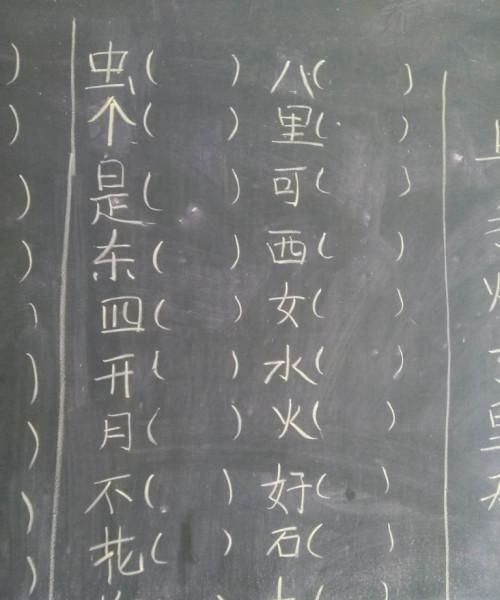 虫( ) 八( )
个( ) 里( )
是( ) 可( )
东( ) 西( )
四( ) 女( )
开( ) 水( )
月( ) 火( )
不( ) 好( )
花( ) 石( )